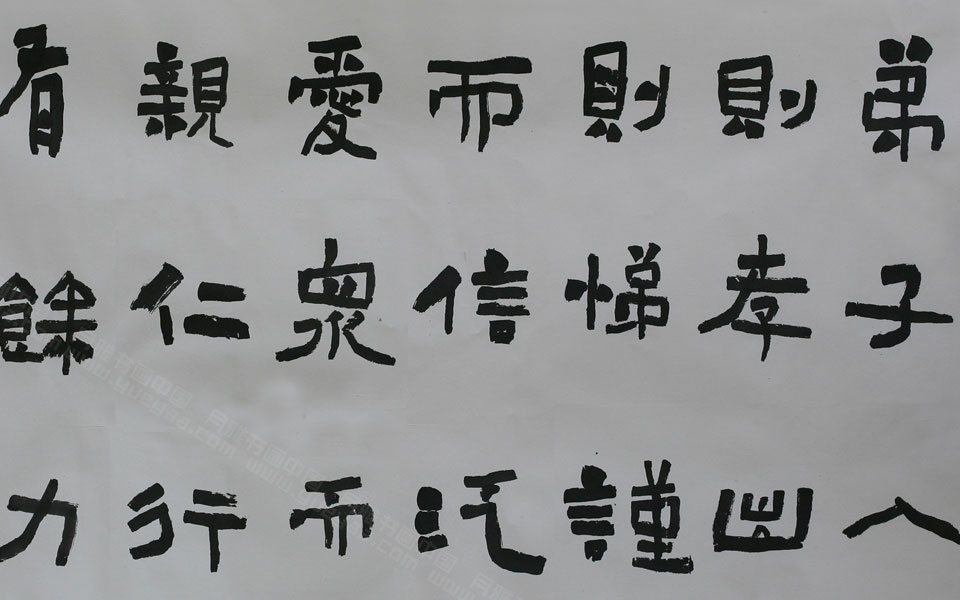 弟子入
則孝出
則悌謹
而信汎
愛眾而
親仁行
有餘力